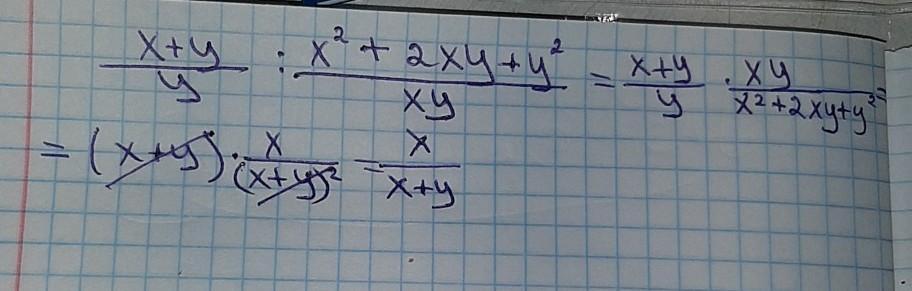 (x+y)/y : (x² + 2xy + y²)/(xy) = (x+y)/y · (xy)/(x² + 2xy + y²) =
= (x+y) · x/(x+y)² = x/(x+y)